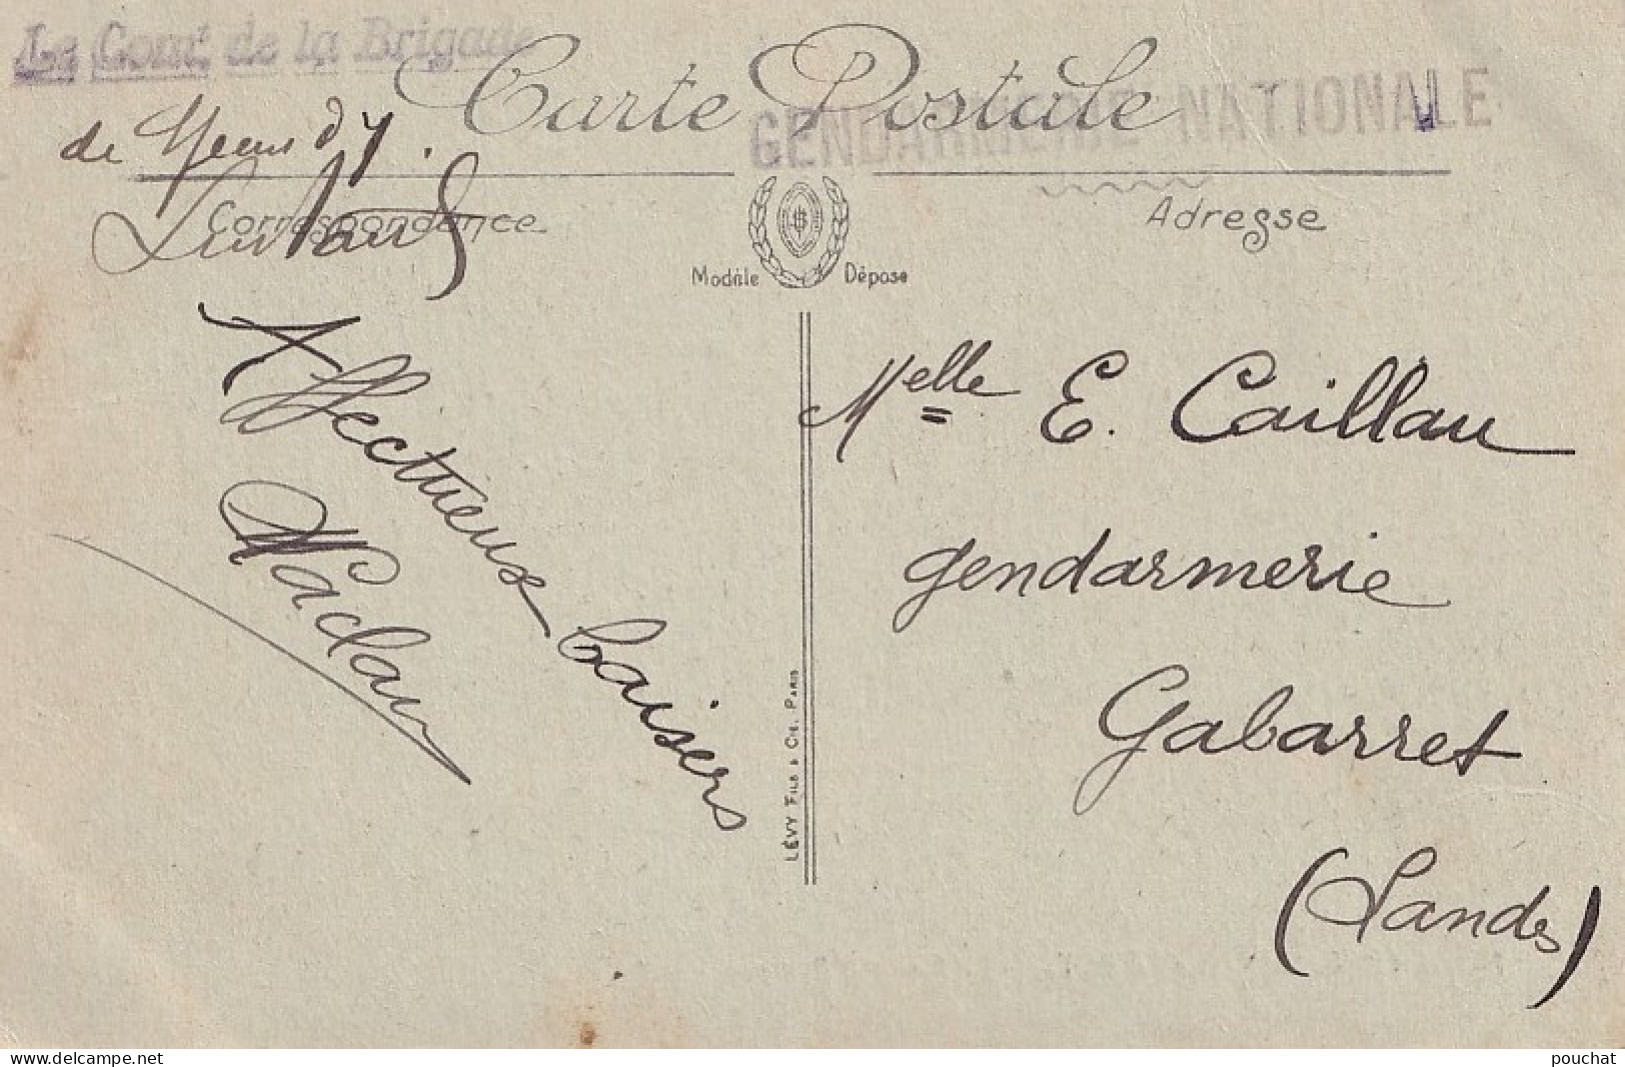 Le Com^t de la Brigade
Carte Postale
GENDARMERIE NATIONALE
de
Correspondance
Adresse
Modèle Déposé
Affectueux baisers
M^elle E. Caillau
gendarmerie
Gabarret
(Landes)
LÉVY FILS & CIE. PARIS
delcampe.net
pouchat